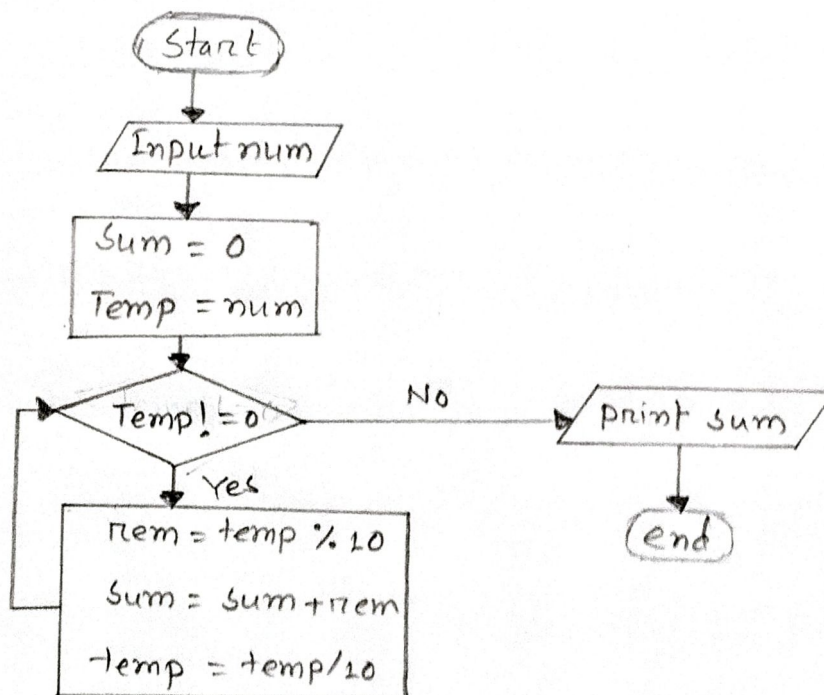 Start
Input num
Sum = 0
Temp = num
Temp! = 0
No
print sum
Yes
end
rem = temp % 10
sum = sum + rem
temp = temp/10